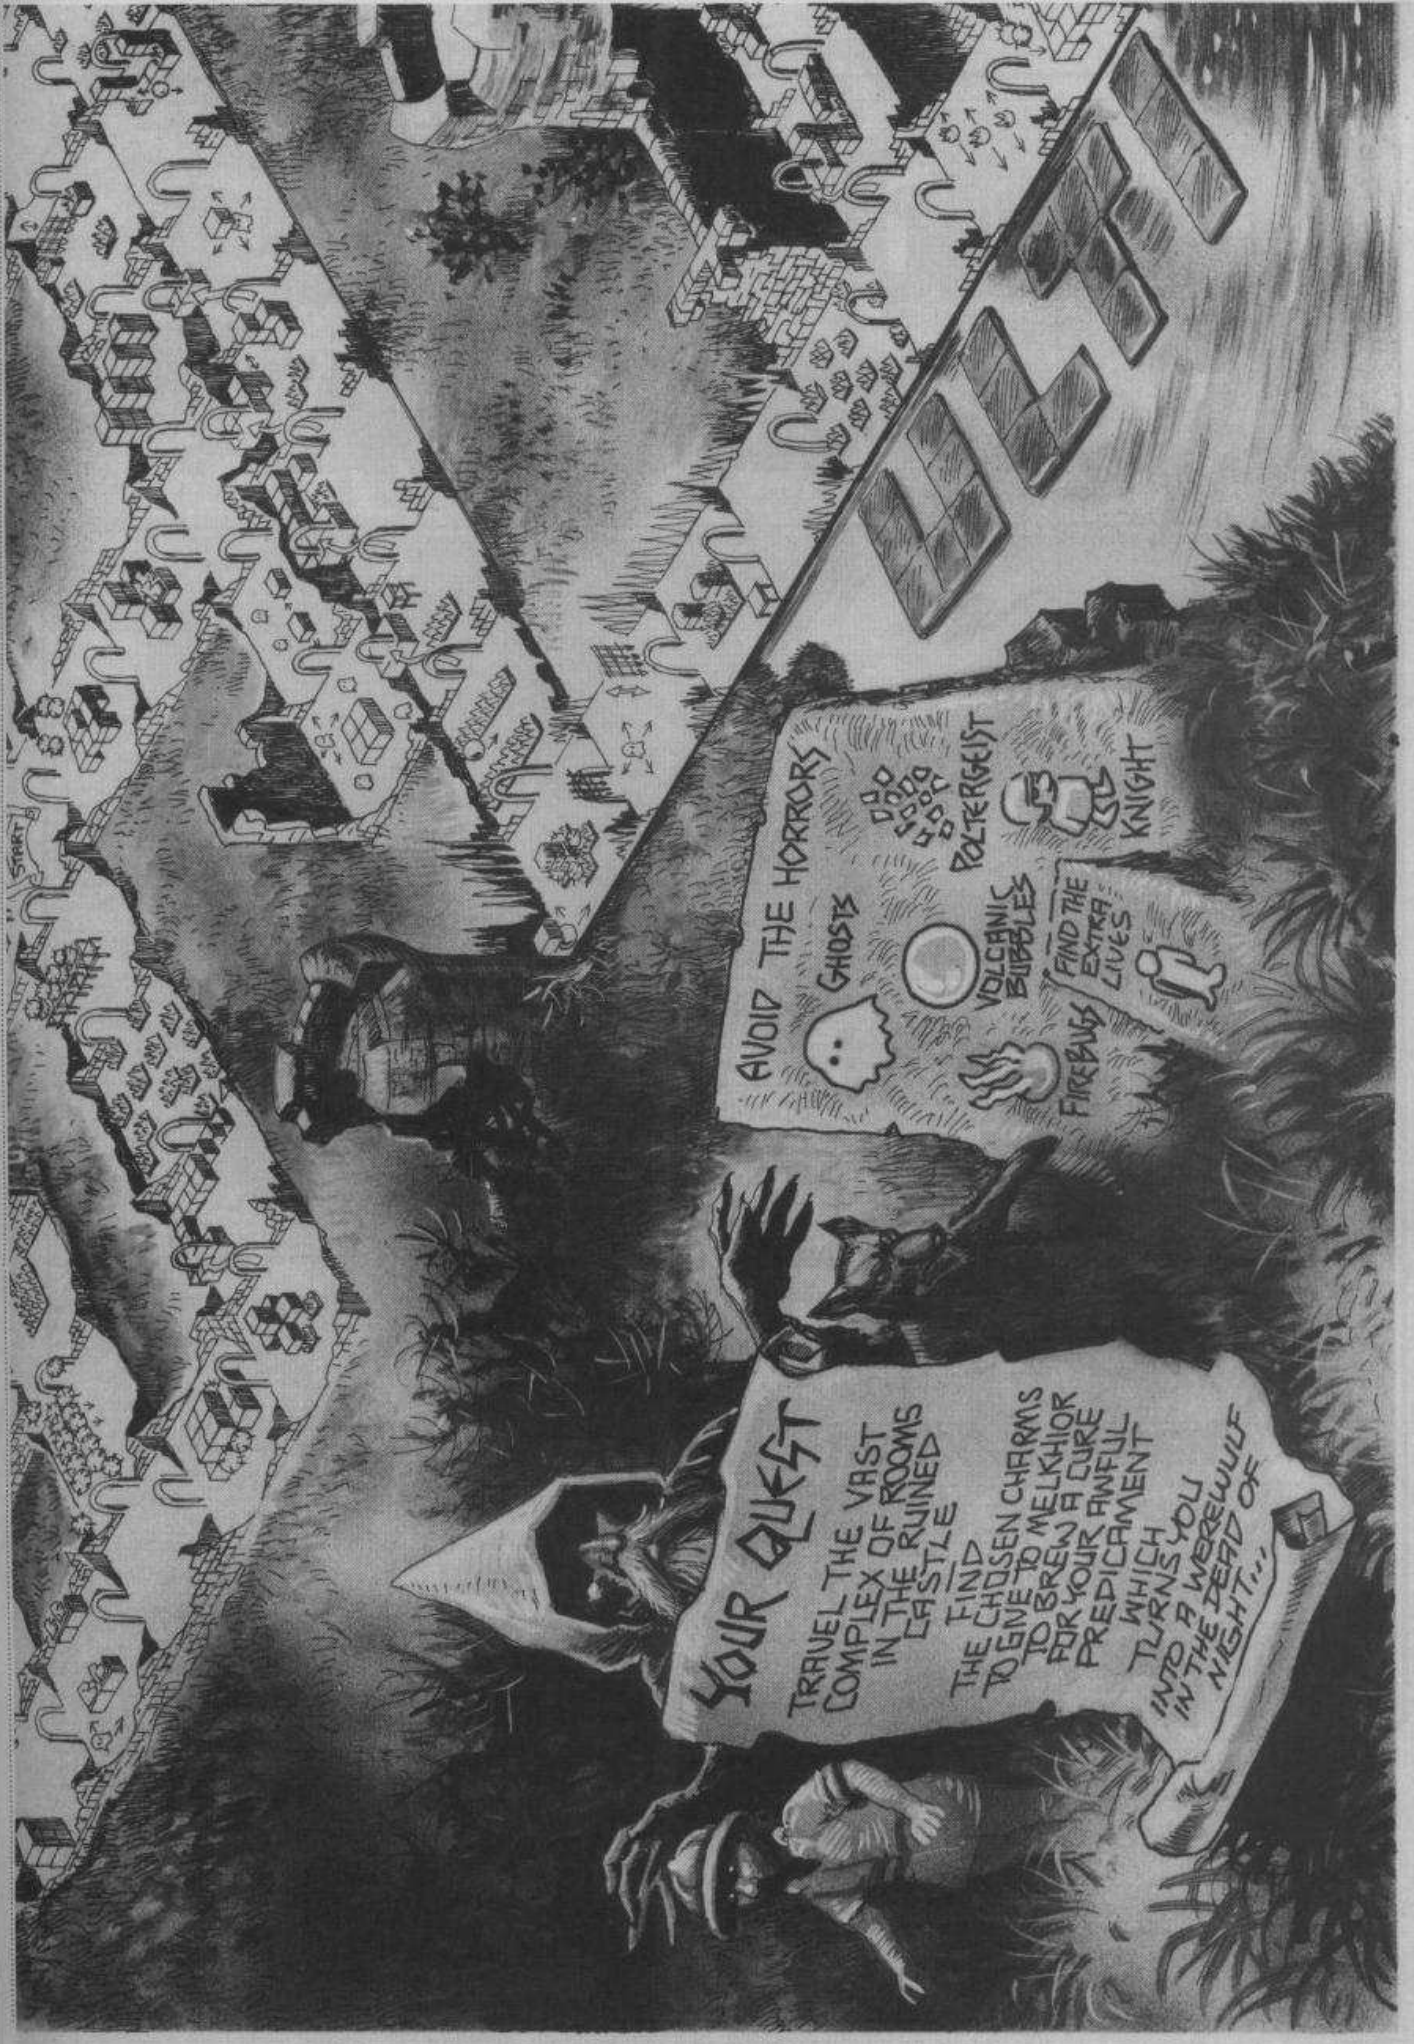 START
YOUR QUEST
TRAVEL THE VAST
COMPLEX OF ROOMS
IN THE RUINED
CASTLE
FIND
THE CHOSEN CHARMS
TO GIVE TO MELKHIOR
TO BREW A CURE
FOR YOUR AWFUL
PREDICAMENT
WHICH
TURNS YOU
INTO A WEREWULF
IN THE DEAD OF
NIGHT...
AVOID THE HORRORS
GHOSTS
POLTERGEIST
VOLCANIC
BUBBLES
FIREBUGS
KNIGHT
FIND THE
EXTRA
LIVES